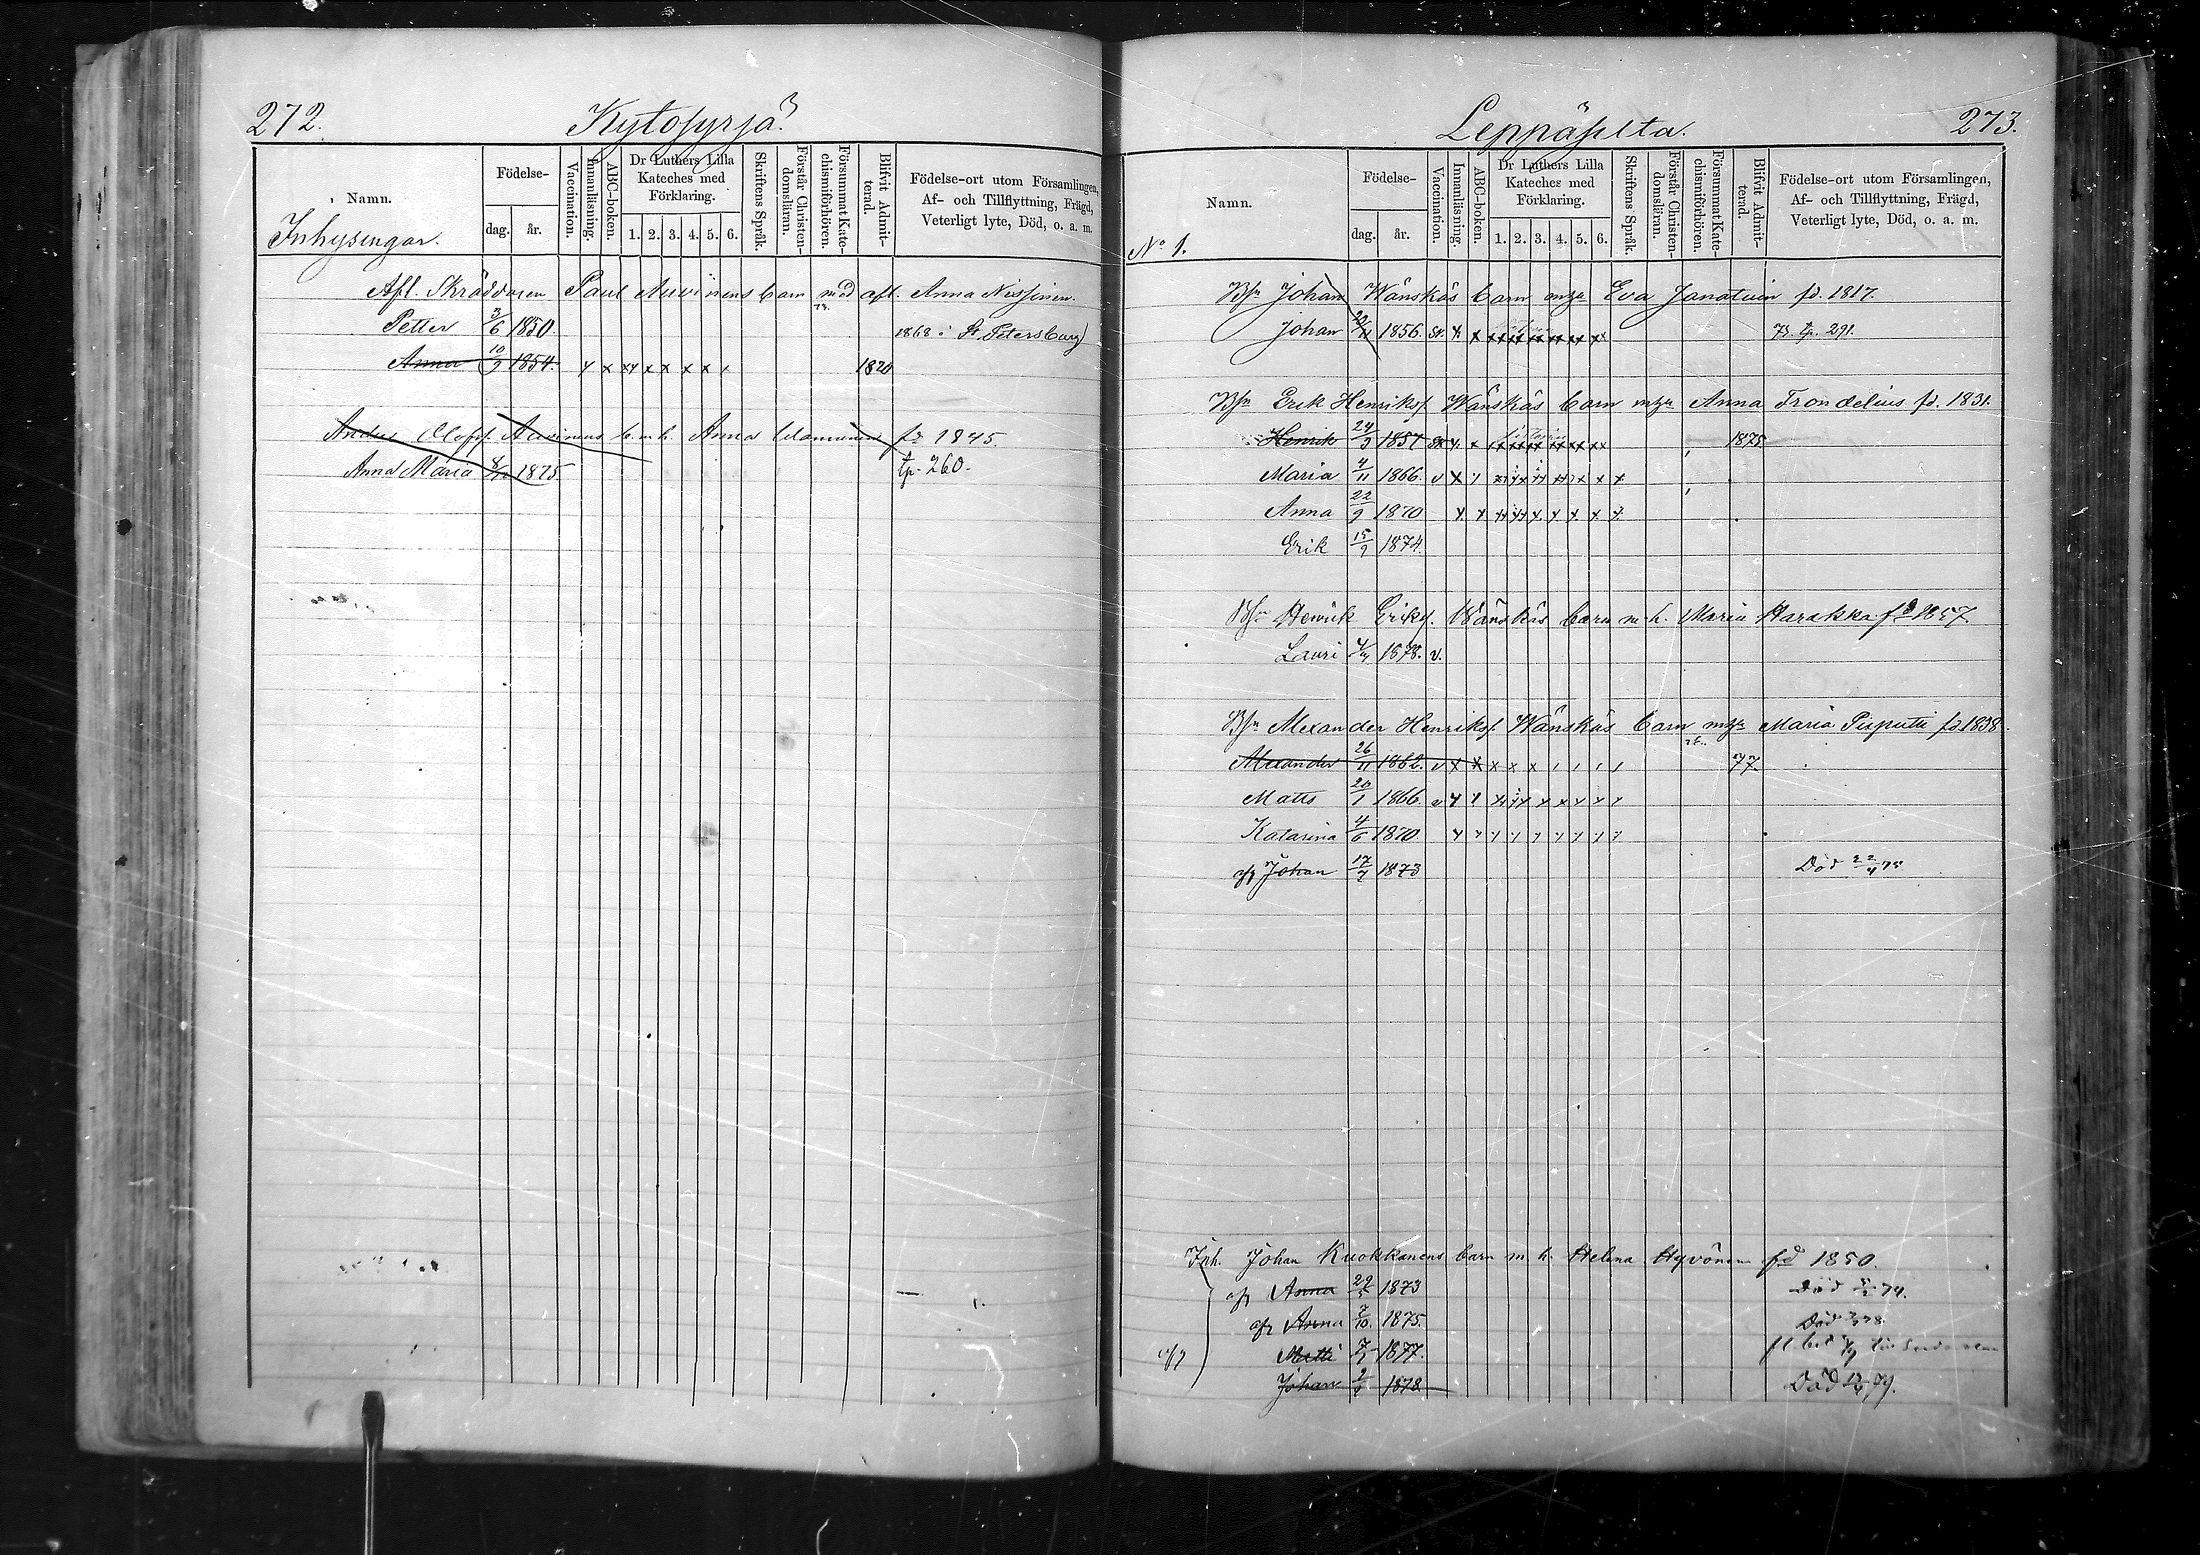 272.
Kytösyrjä.
Namn.
Födelse-
dag.
år.
Vaccination.
Innanläsning.
ABC-boken.
Dr Luthers Lilla
Kateches med
Förklaring.
1. 2. 3. 4. 5. 6.
Skriftens Språk.
Förstår Christen-
domsläran.
Försummat Kate-
chismiförhören.
Blifvit Admit-
terad.
Födelse-ort utom Församlingen,
Af- och Tillflyttning, Frägd,
Veterligt lyte, Död, o. a. m.
Inhysingar.
Afl. Skräddaren Paul Auvinens barn med afl. Anna Nissinen.
Petter 3/6 1850 1868 i St. Petersburg
Anna 10/9 1854. 1870
Olofs. Auvinens b. m. h. Anna fd 1845.
Anna Maria 1875 tp. 260.
273.
Leppäselta.
Namn.
Födelse-
dag.
år.
Vaccination.
Innanläsning.
ABC-boken.
Dr Luthers Lilla
Kateches med
Förklaring.
1. 2. 3. 4. 5. 6.
Skriftens Språk.
Förstår Christen-
domsläran.
Försummat Kate-
chismiförhören.
Blifvit Admit-
terad.
Födelse-ort utom Församlingen,
Af- och Tillflyttning, Frägd,
Veterligt lyte, Död, o. a. m.
No 1.
Johan Wänskäs barn Eva Janatuin fd. 1817.
Johan 1856. 291.
Erik Henriks. Wänskäs barn Anna Trondelius fd. 1831.
Henrik 24/3 1857 1875
Maria 4/11 1866. v
Anna 22/9 1870
Erik 15/9 1874.
Henrik Eriks. Wänskäs barn m. h. Maria Harakka fd 1857
Lauri 1878. v.
Alexander Henriks. Wänskäs barn Maria Pisputti fd. 1838.
Alexander 26/11 1862. v 77.
Matts 20/1 1866. v
Katarina 4/6 1870.
Johan 17/7 1873 Död 22/4 75
Inh. Johan Kuokkanens barn m. h. Helena Hyvönen fd 1850.
Anna 22/5 1873 Död 74.
Anna 7/10 1875. Död 78.
Matti 1877.
Johan 1878. Död 79.